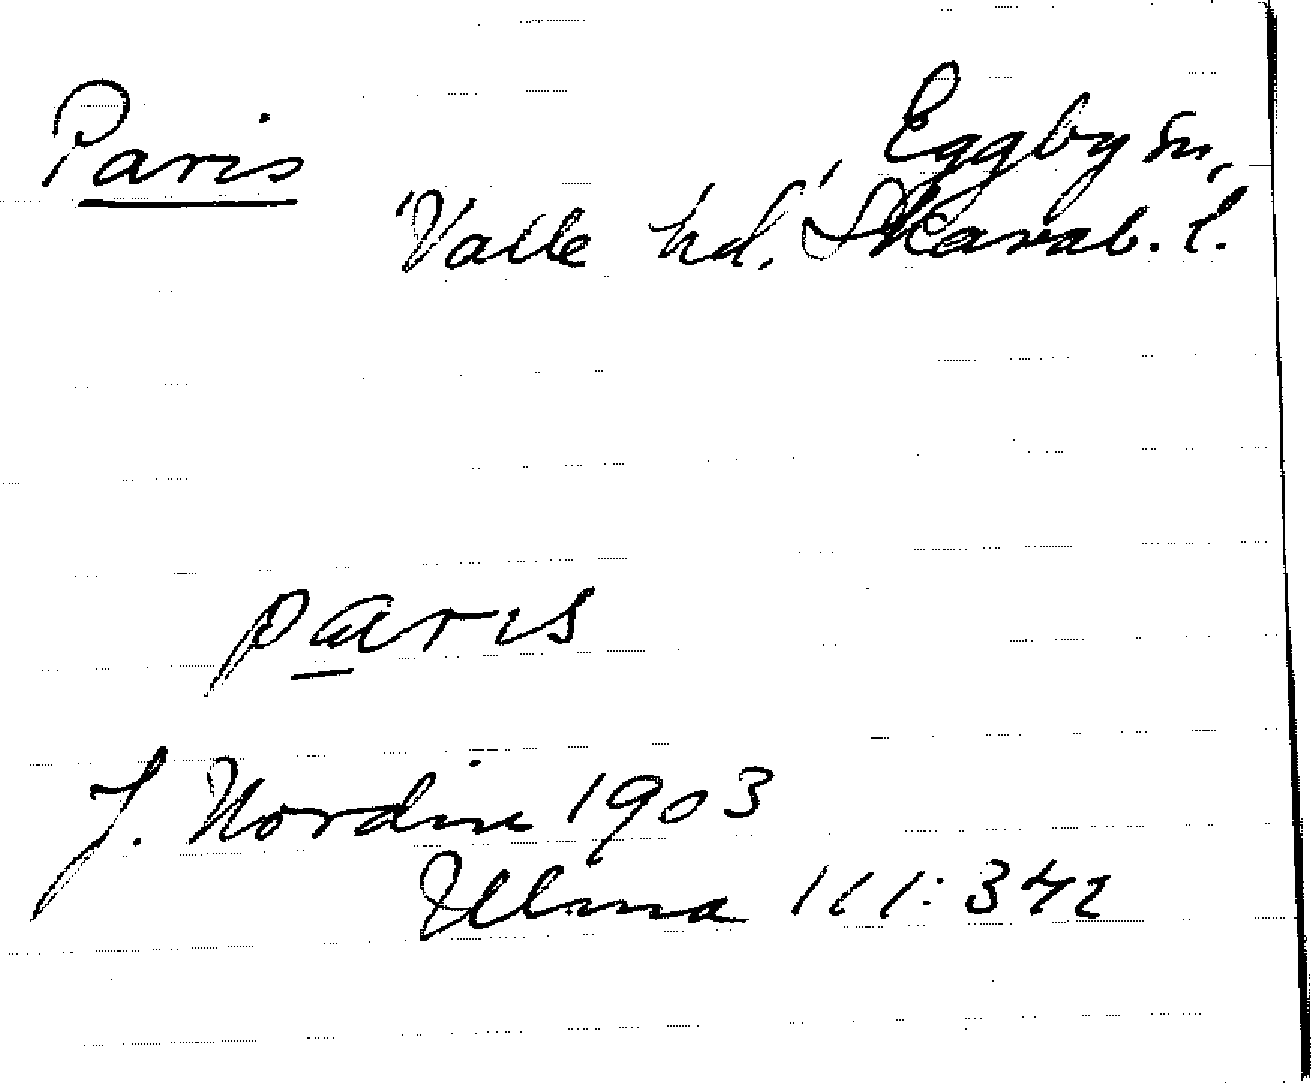 Paris
Eggby sn,
Valle hd, Skarab. l.
paris
J. Nordin 1903
Ulma 111:342